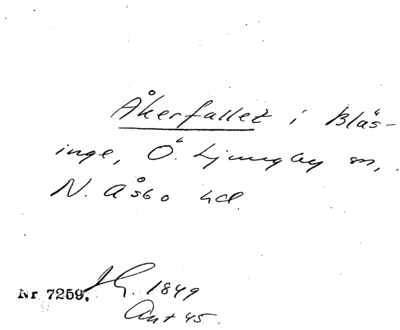 Åkerfallet i Bläs-
inge, Ö. Ljungby sn,
N. Åsbo hd.
Nr 7259. 1849
Ant 45.